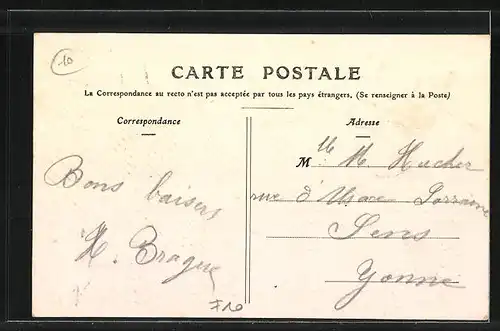 10
CARTE POSTALE
La Correspondance au recto n'est pas acceptée par tous les pays étrangers. (Se renseigner à la Poste)
Correspondance
Adresse
Mlle M. Hucher
rue d'Alsace Lorraine
Sens
Yonne
Bons baisers
H. Brague